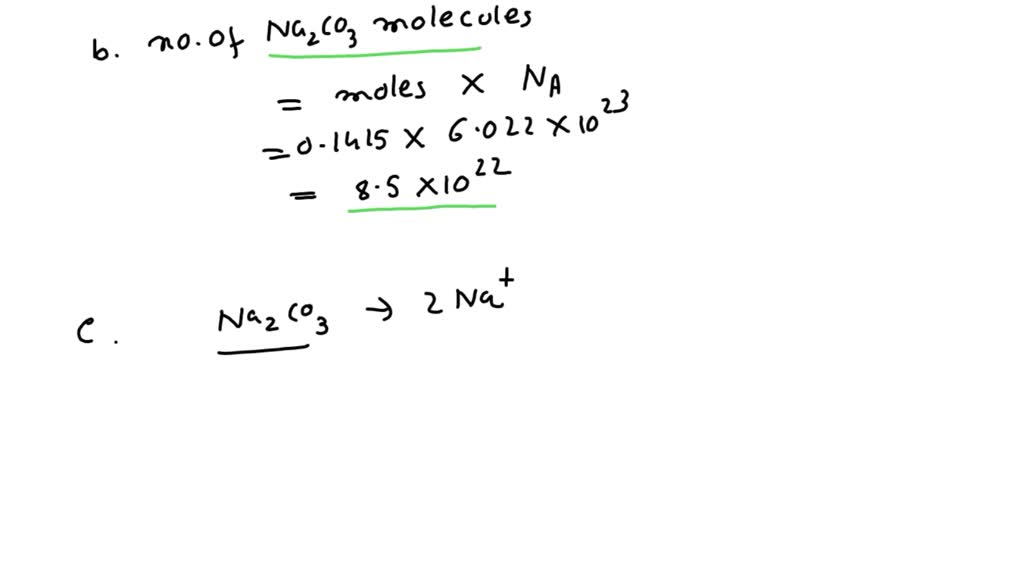 b. no. of Na₂CO₃ molecules
= moles × N_A
= 0.1415 × 6.022 × 10²³
= 8.5 × 10²²
c. Na₂CO₃ → 2 Na⁺